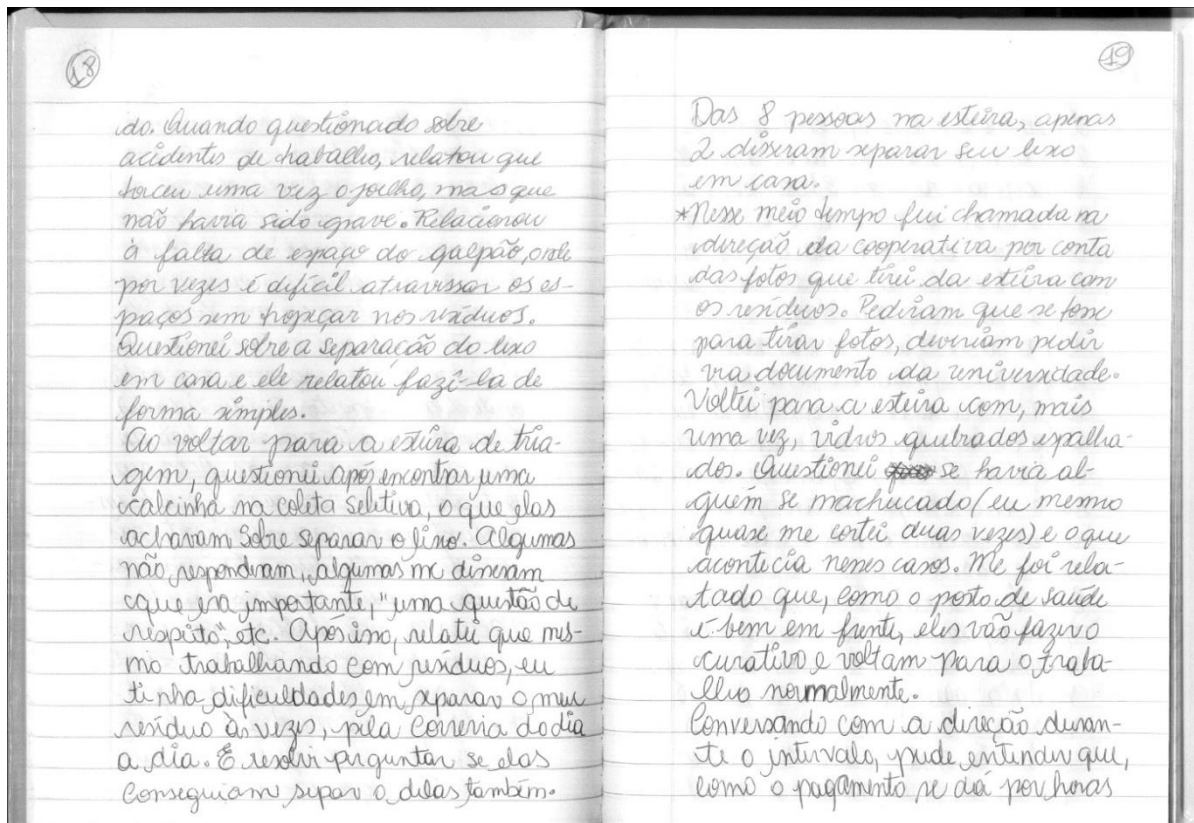 18
do. Quando questionado sobre
acidentes de trabalho, relatou que
torceu uma vez o joelho, mas que
não havia sido grave. Relacionou
à falta de espaço do galpão, onde
por vezes é difícil atravessar os es-
paços sem tropeçar nos resíduos.
Questionei sobre a separação do lixo
em casa e ele relatou fazê-la de
forma simples.
Ao voltar para a esteira de tria-
gem, questionei após encontrar uma
calcinha na coleta seletiva, o que elas
achavam sobre separar o lixo. Algumas
não responderam, algumas me disseram
que era importante, "uma questão de
respeito", etc. Após isso, relatei que mes-
mo trabalhando com resíduos, eu
tinha dificuldades em separar o meu
resíduo às vezes, pela correria do dia
a dia. E resolvi perguntar se elas
conseguiam separ o delas também.
19
Das 8 pessoas na esteira, apenas
2 disseram separar seu lixo
em casa.
*Nesse meio tempo fui chamada na
direção da cooperativa por conta
das fotos que tirei da esteira com
os resíduos. Pediram que se fosse
para tirar fotos, deveriam pedir
via documento da universidade.
Voltei para a esteira com, mais
uma vez, vidros quebrados espalha-
dos. Questionei se havia al-
guém se machucado (eu mesmo
quase me cortei duas vezes) e o que
acontecia nesses casos. Me foi rela-
tado que, como o posto de saúde
é bem em frente, eles vão fazer o
curativo e voltam para o traba-
lho normalmente.
Conversando com a direção duran-
te o intervalo, pude entender que,
como o pagamento se dá por horas